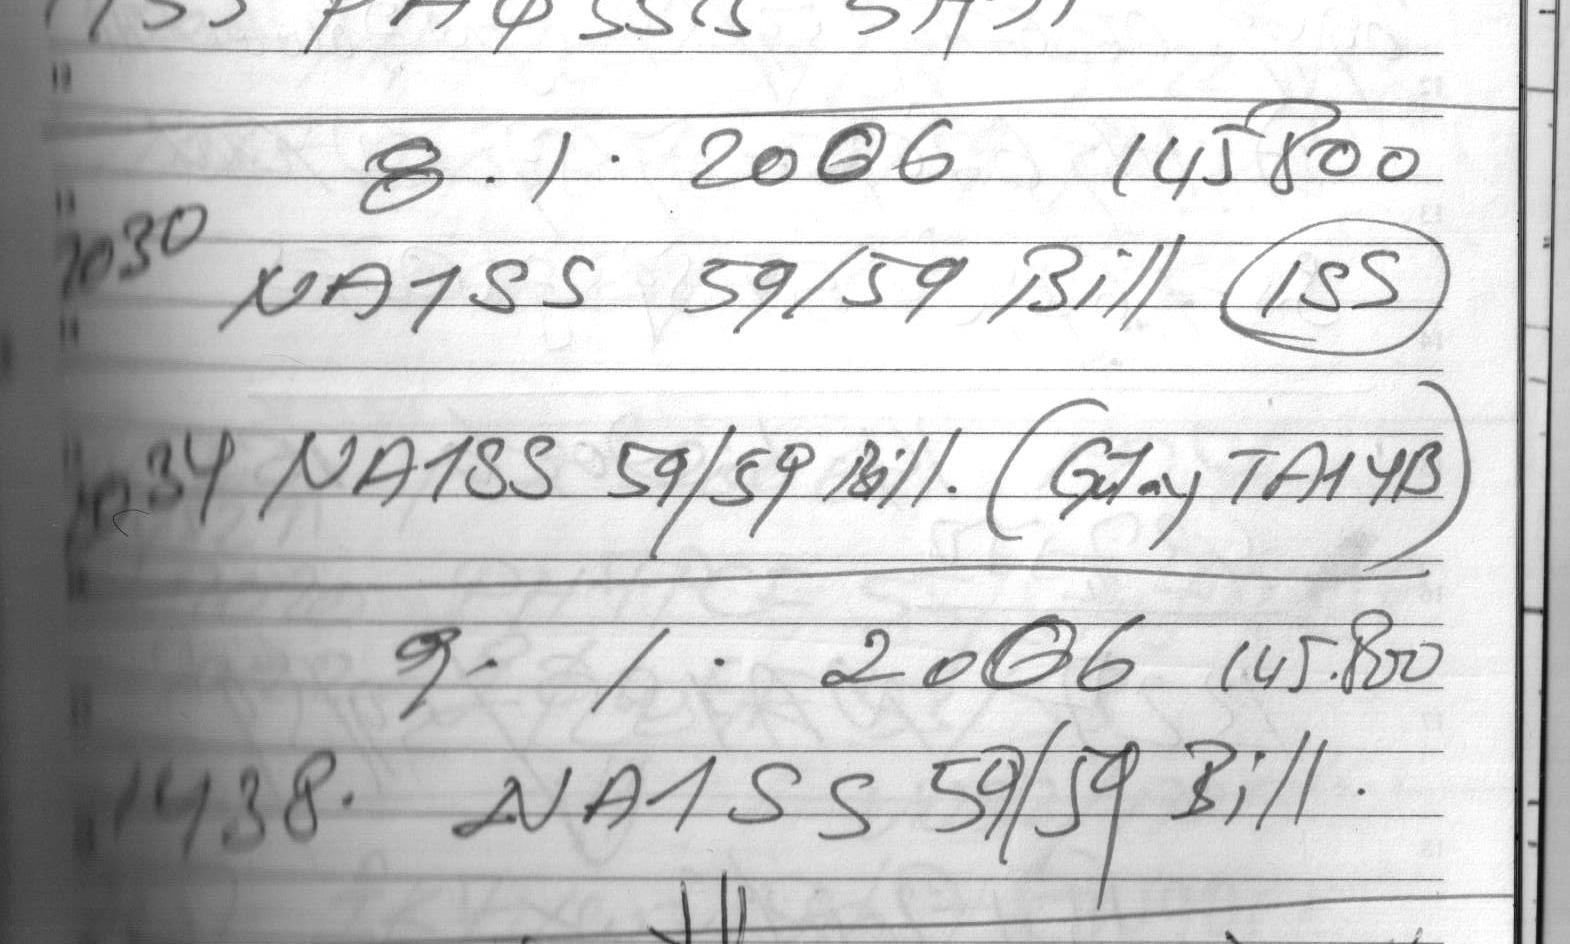 8.1.2006 145800
2030 NA1SS 59/59 Bill ISS
2034 NA1SS 59/59 Bill. (Gülay TA1YB)
9.1.2006 145.800
1438. NA1SS 59/59 Bill.